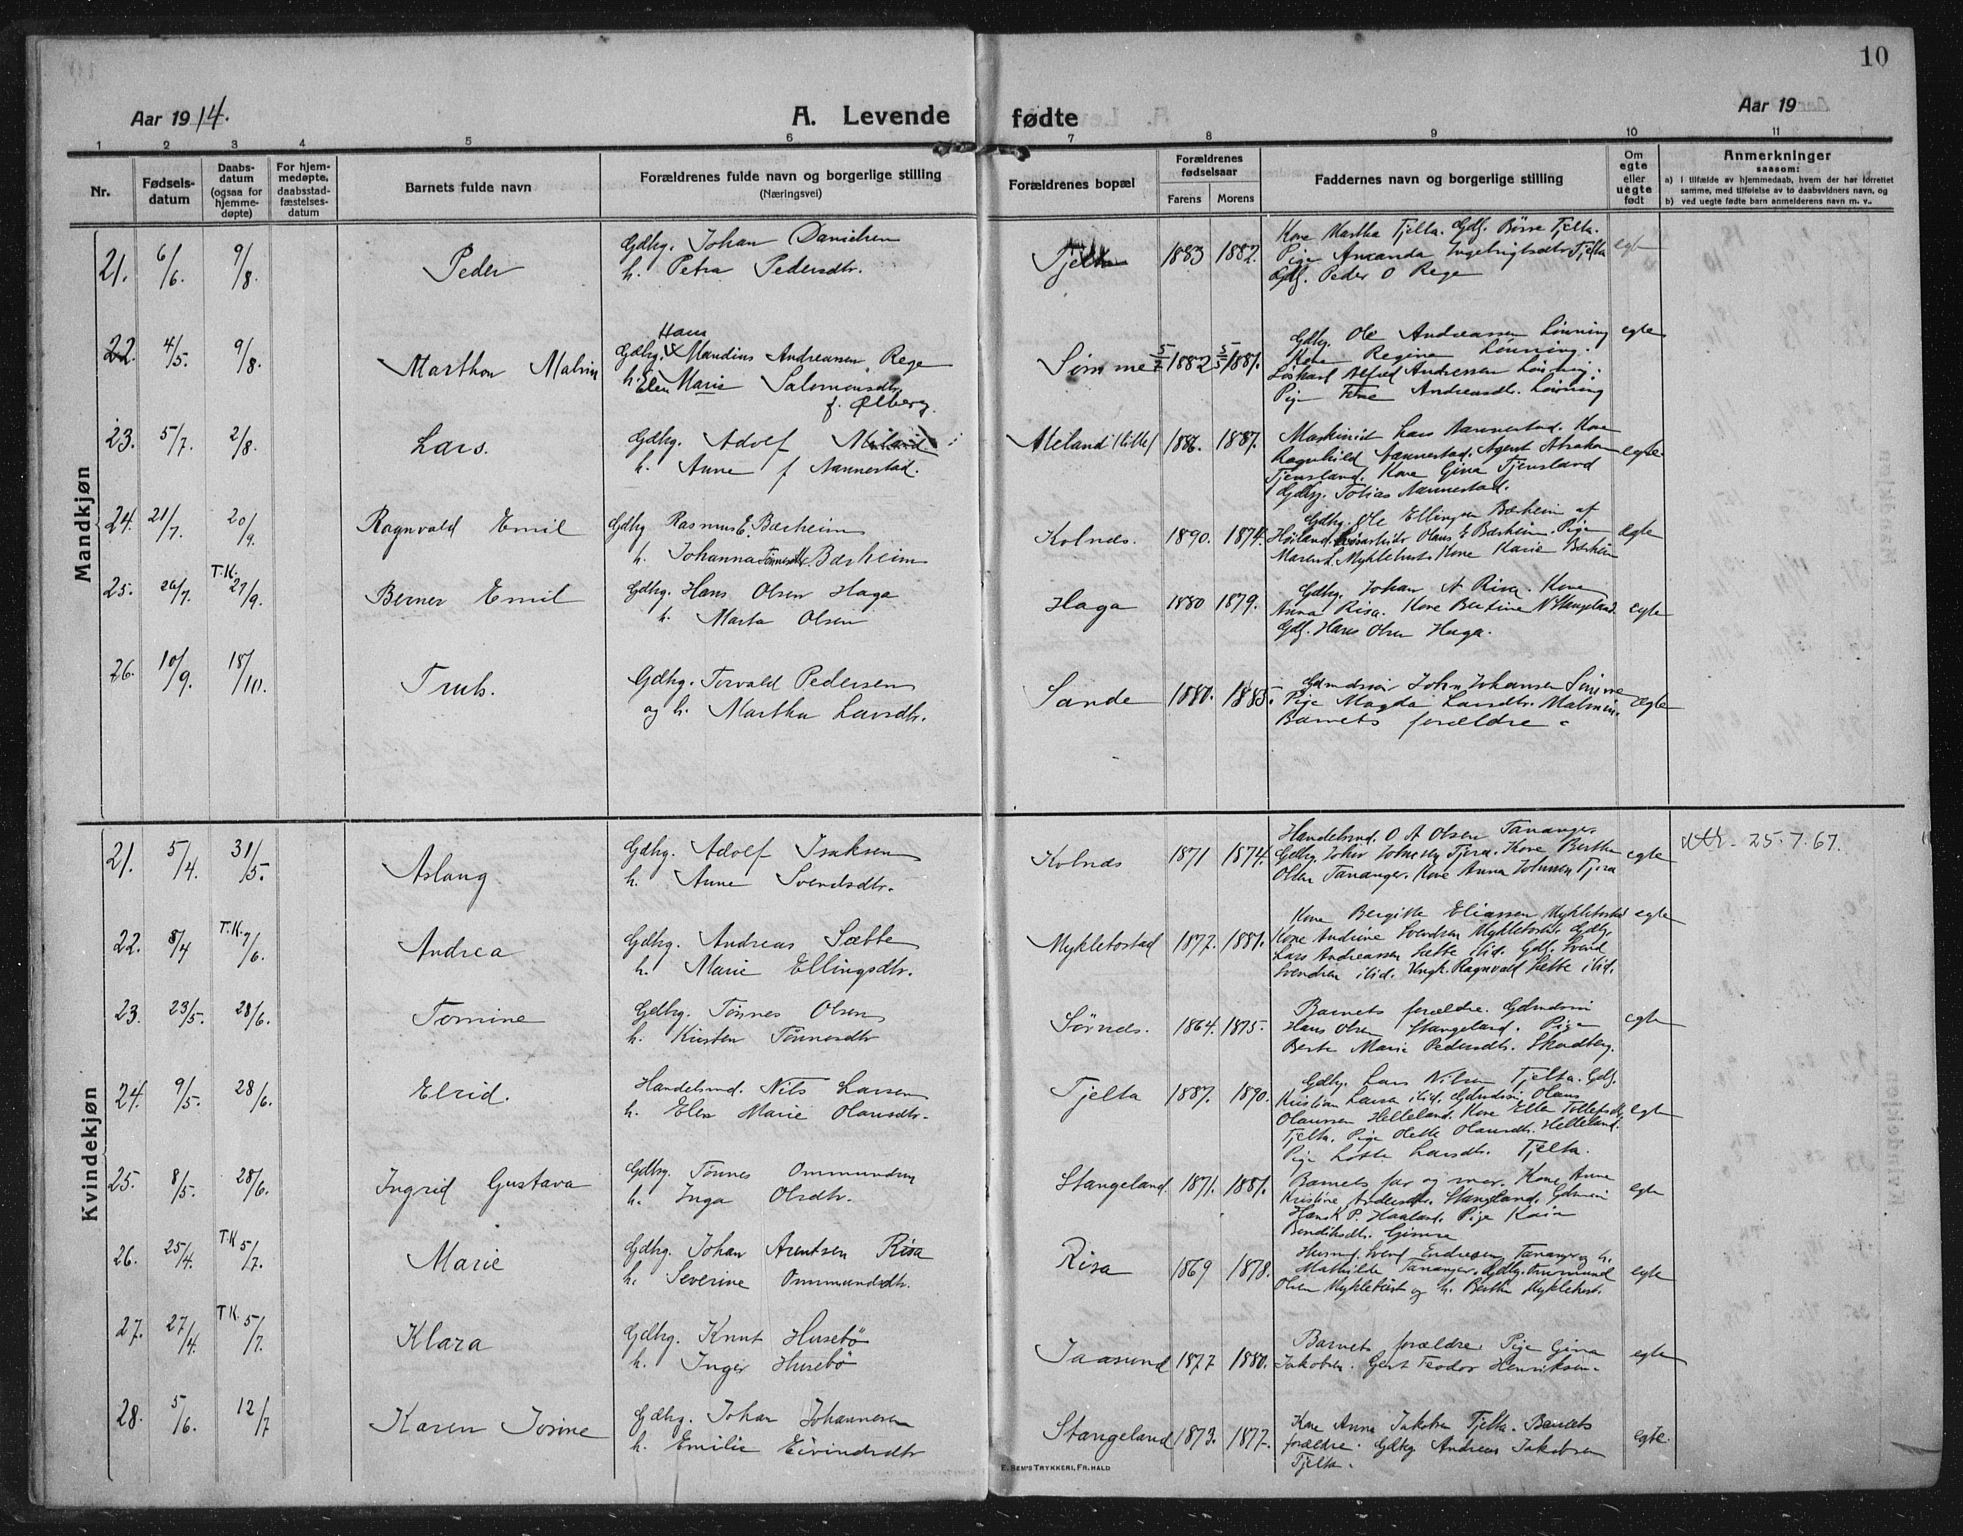 10
Aar 1914.
A. Levende fødte
Aar 19
1 2 3 4 5 6 7 8 9 10 11
Nr.
Fødselsdatum
Daabsdatum (ogsaa for hjemmedøpte)
For hjemmedøpte, daabsstadfæstelsesdatum
Barnets fulde navn
Forældrenes fulde navn og borgerlige stilling
(Næringsvei)
Forældrenes bopæl
Forældrenes fødselsaar
Farens Morens
Faddernes navn og borgerlige stilling
Om egte eller uegte født
Anmerkninger
saasom:
a) i tilfælde av hjemmedaab, hvem der har forrettet samme, med tilføielse av to daabsvidners navn, og
b) ved uegte fødte barn anmelderens navn m. v..
Mandkjøn
21. 6/6. 9/8. Peder
Gdbg. Johan Danielsen
h. Petra Pedersdtr.
Tjelta 1883 1882. egte
Kone Martha Tjelta. Gdf. Børre Tjelta.
Pige Amanda Ingebrigtsdtr Tjelta
Gdf. Peder O Rege
22. 4/5. 9/8. Marthon Malvin
Hans
Gdbg. Mandius Andreassen Rege
h. Elen Marie Salomonsdtr.
f. Ølberg.
Sømme 5/2 1882 5/5 1881. egte
Gdbg. Ole Andreassen Lønning
Kone Regine Lønning.
Løskarl Alfred Andreassen Lønning.
Pige Tene Andreasdtr. Lønning
23. 5/7. 2/8. Lars.
Gdbg. Adolf
h. Anne f Nannestad.
Meland (lille) 1886. 1887. egte
Maskinist Lars Nannestad. Kone
Ragnhild Nannestad. Agent Abraham
Tjensland. Kone Gina Tjensland
Gdbg. Tobias Nannestad.
24. 21/7. 20/9. Ragnvald Emil
Gdbg Rasmus E. Barheim
h. Johanna Barheim
Kolnes. 1890. 1874. egte
Gdbg. Ole Ellingsen Barheim af
Høiland. Olaus E Barheim. Pige
Maren L. Myklebust. Kone Karie Barheim
25. 26/7. T.K. 27/9. Berner Emil
Gdbg. Hans Olsen Haga
h. Marta Olsen
Haga 1880 1879. egte
Gdbg. Johan A Risa. Kone
Anna Risa. Kone Bertine N Stangeland.
Gdf. Hans Olsen Haga.
26. 10/9. 18/10. Truls.
Gdbg. Torvald Pedersen
og h. Martha Larsdtr.
Sande 1880. 1885. egte
Gdmdssøn John Johansen Sømme
Pige Magda Larsdtr. Malmin.
Barnets forældre
Kvindekjøn
21. 5/4. 31/5. Aslaug
Gdbg. Adolf Isaksen
h. Anne Svendsdtr.
Kolnes 1871 1874. egte
Handelsmd. O A Olsen Tananger.
Gdbg. John Johnsen Tjora. Kone Berthe
Olsen Tananger. Kone Anna Johnsen Tjora
25.7.67.
22. 8/4 T.K. 7/6. Andrea
Gdbg. Andreas Sætte
h. Marie Ellingsdtr.
Myklebostad 1877. 1881. egte
Kone Bergitte Eliassen Myklebostad
Kone Andrine Svendsen Myklebost. Gdbg.
Lars Andreassen Sætte ibid. Gdf. Svend
Svendsen ibid. Ungk. Ragnvald Sætte ibid.
23. 23/5. 28/6. Tomine
Gdbg. Tønnes Olsen
h. Kirsten Tønnesdtr
Sørnes. 1864. 1875. egte
Barnets forældre. Gdmdssøn
Hans Olsen Stangeland. Pige
Berte Marie Pedersdtr. Skadberg.
24. 9/5. 28/6. Elrid.
Handelsmd. Nils Larsen
h. Elen Marie Olausdtr.
Tjelta 1887. 1890. egte
Gdbg. Lars Nilsen Tjelta. Gdf.
Kristian Larsen ibid. Gdmdssøn Olaus
Olaussen Helleland. Kone Ellen Tollefsdtr
Tjelta. Pige Olette Olausdtr. Helleland.
Pige Lotte Larsdtr. Tjelta.
25. 8/5. 28/6. Ingrid Gustava
Gdbg. Tønnes Ommundsen
h. Inga Olsdtr.
Stangeland 1871. 1881. egte
Barnets far og mor. Kone Anne
Kristine Andersdtr. Stangeland. Gdmssøn
Hans K P. Haaland. Pige Kaia
Bendiktsdtr. Gimre
26. 25/4. T.K 5/7. Marie
Gdbg. Johan Arentsen Risa
h. Severine Ommundsdtr.
Risa 1869 1878. egte
Husmd. Svend Endresen Tananger og h.
Mathilde Tananger. Gdbg. Ommund
Olsen Myklebust og h. Berthe Myklebust.
27. 27/4. T.K. 5/7. Klara
Gdbg. Knut Husebø
h. Inger Husebø
Jaasund 1877 1880. egte
Barnets forældre. Pige Gina
Jakobsen. Gert Teodor Henriksen
28. 5/6. 12/7 Karen Josine
Gdbg. Johan Johannesen
h. Emilie Eivindsdtr
Stangeland 1873. 1877. egte.
Kone Anna Jakobsen Tjelta. Barnets
forældre. Gdbg Andreas Jakobsen
Tjelta.
E. SEM'S TRYKKERI, FR.HALD